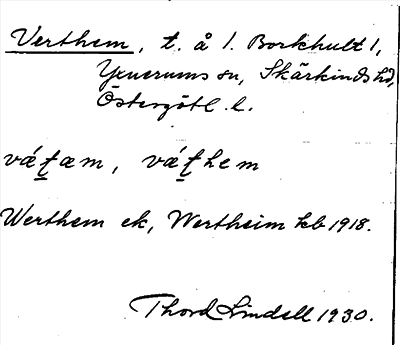 Verthem, t. å 1. Borkhult 1,
Yxnerums sn, Skärkinds hd,
Östergötl. l.
vǽt̠æm, vǽt̠hem
Werthem ek, Wertheim kb 1918.
Thord Lindell 1930.